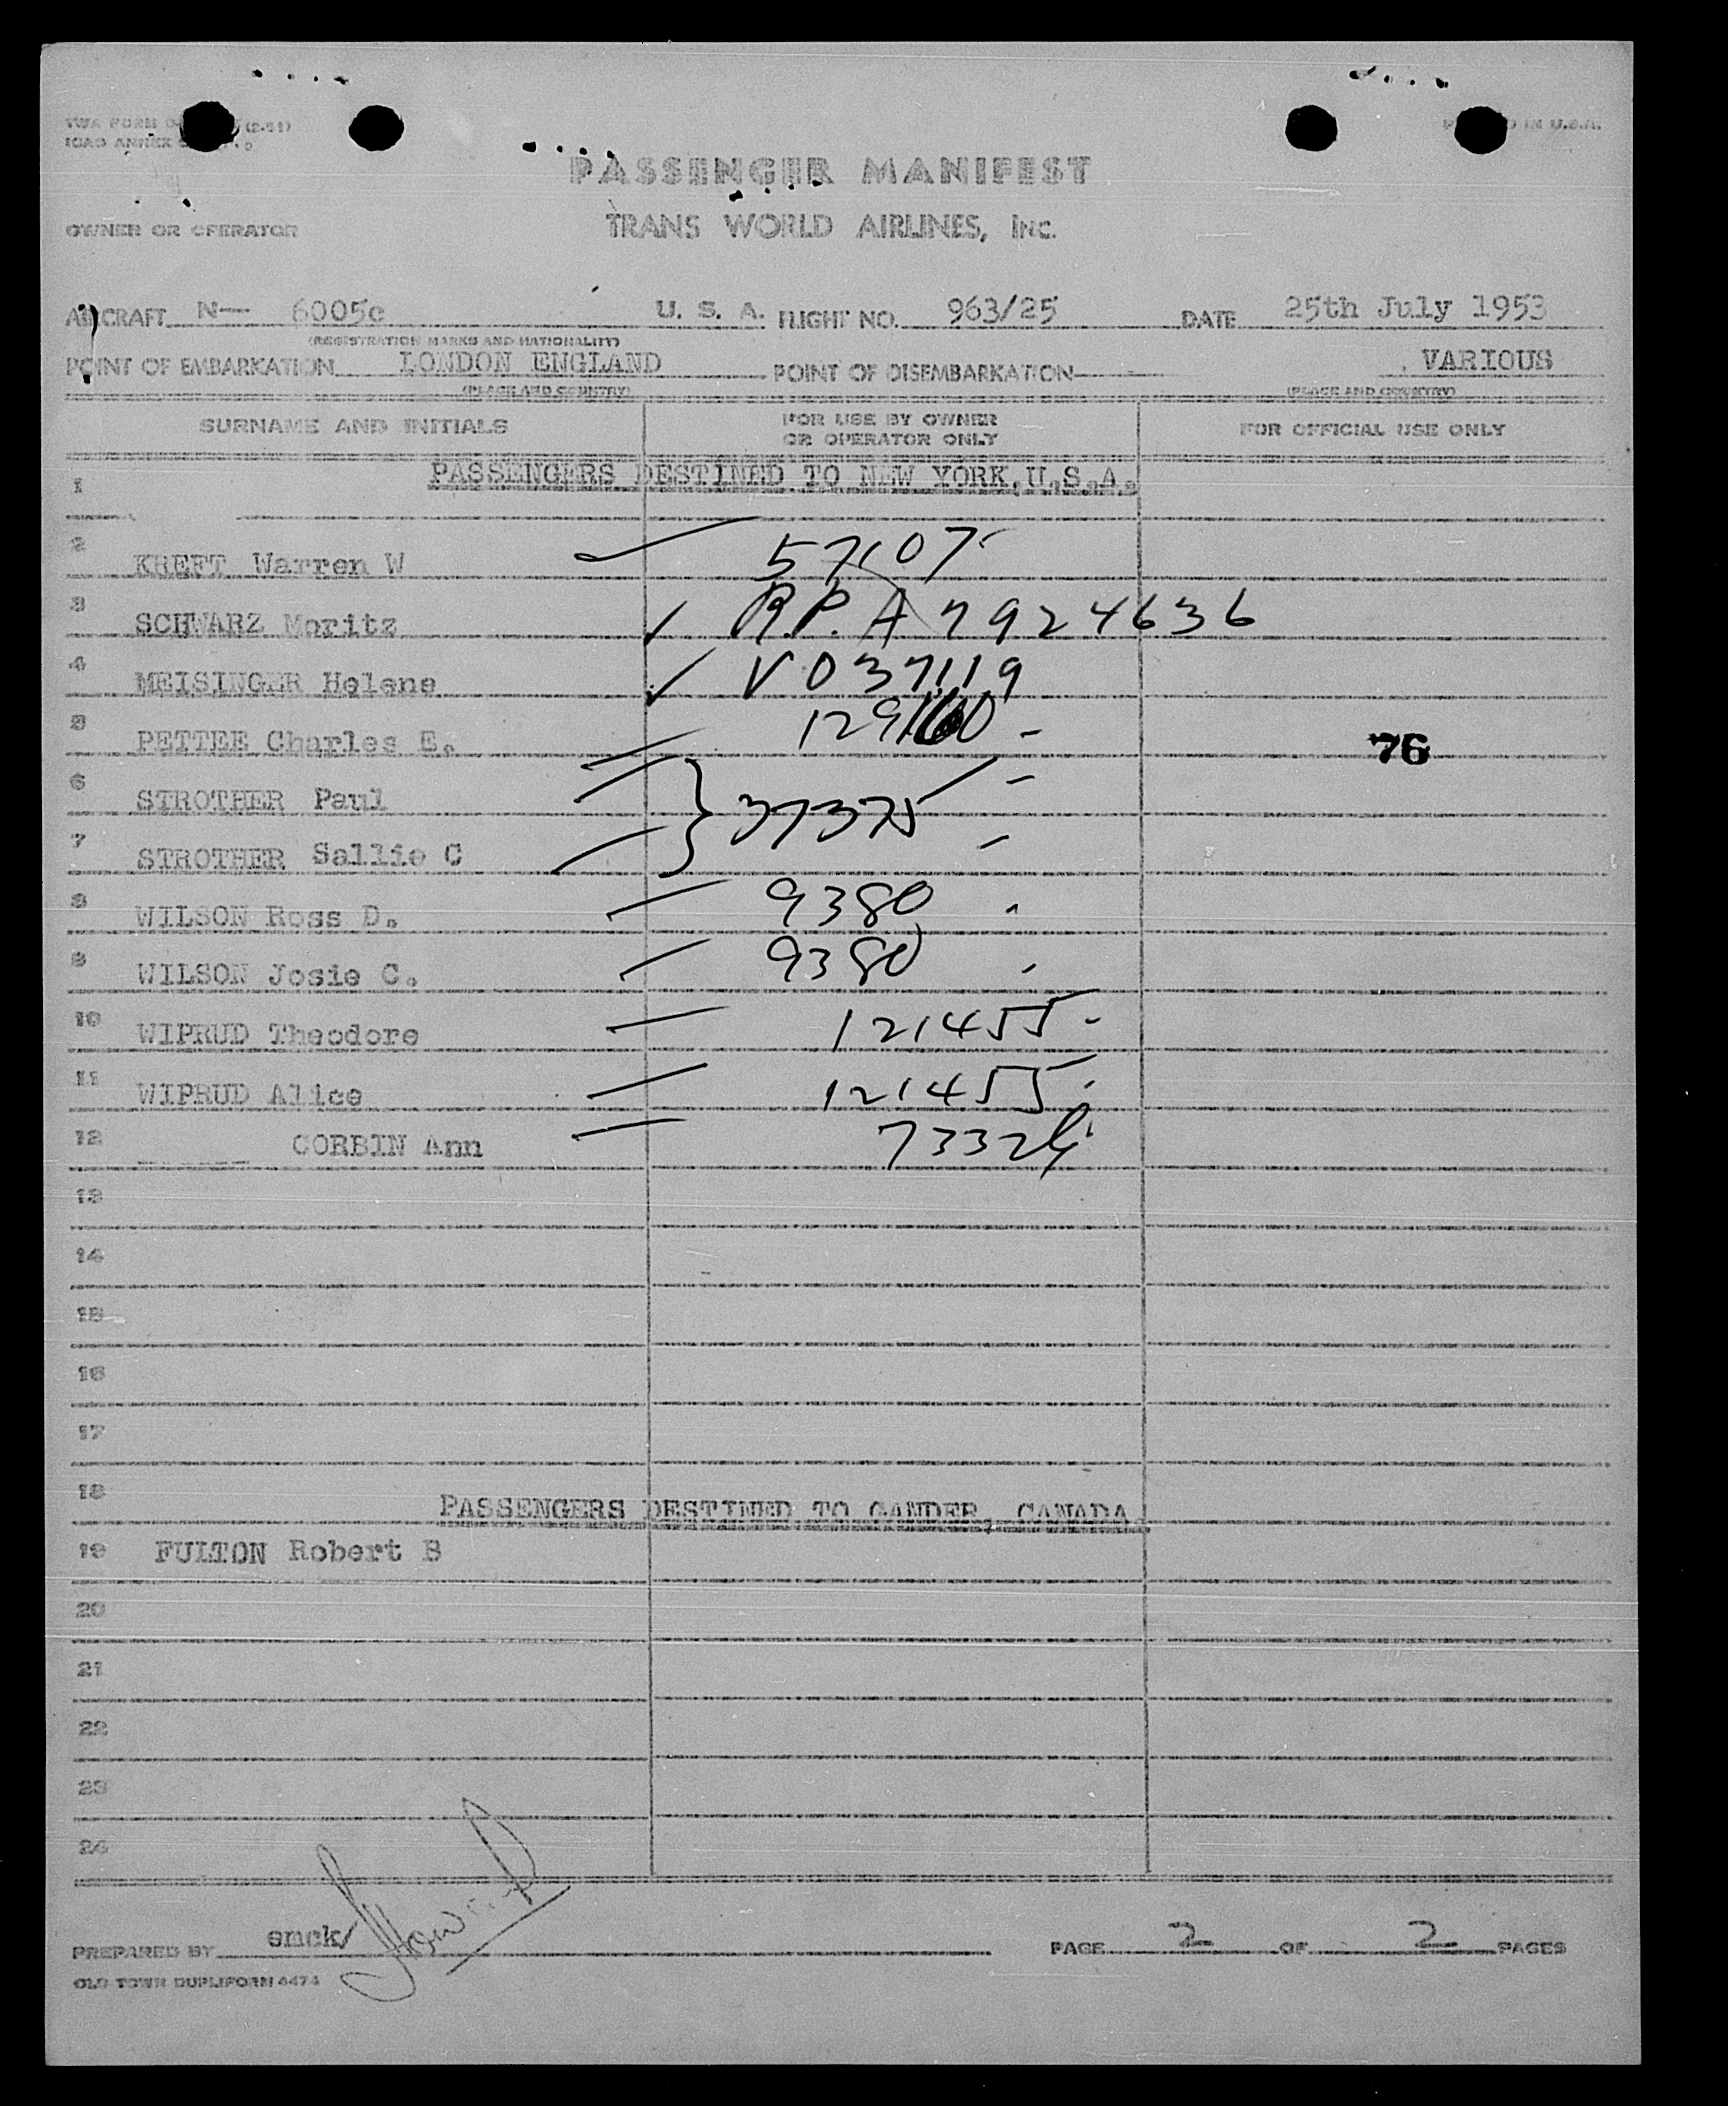 TWA FORM (2-51)
PRINTED IN U.S.A.
ICAO ANNEX
PASSENGER MANIFEST
OWNER OR OPERATOR TRANS WORLD AIRLINES, INC.
AIRCRAFT N— 6005c U. S. A. FLIGHT NO. 963/25 DATE 25th July 1953
(REGISTRATION MARKS AND NATIONALITY)
POINT OF EMBARKATION LONDON ENGLAND POINT OF DISEMBARKATION VARIOUS
(PLACE AND COUNTRY) (PLACE AND COUNTRY)
SURNAME AND INITIALS FOR USE BY OWNER OR OPERATOR ONLY FOR OFFICIAL USE ONLY
1 PASSENGERS DESTINED TO NEW YORK, U.S.A.
2 KREFT Warren W 57107
3 SCHWARZ Moritz R.P. A 7924636
4 MEISINGER Helene V 037119
5 PETTEE Charles E. 129160 76
6 STROTHER Paul } 37375
7 STROTHER Sallie C
8 WILSON Ross D. 9380
9 WILSON Josie C. 9380
10 WIPRUD Theodore 121455
11 WIPRUD Alice 121455
12 CORBIN Ann
13
14
15
16
17
18 PASSENGERS DESTINED TO GANDER, CANADA
19 FULTON Robert B
20
21
22
23
24
PREPARED BY emck/ PAGE 2 OF 2 PAGES
OLD TOWN DUPLIFORM 4474